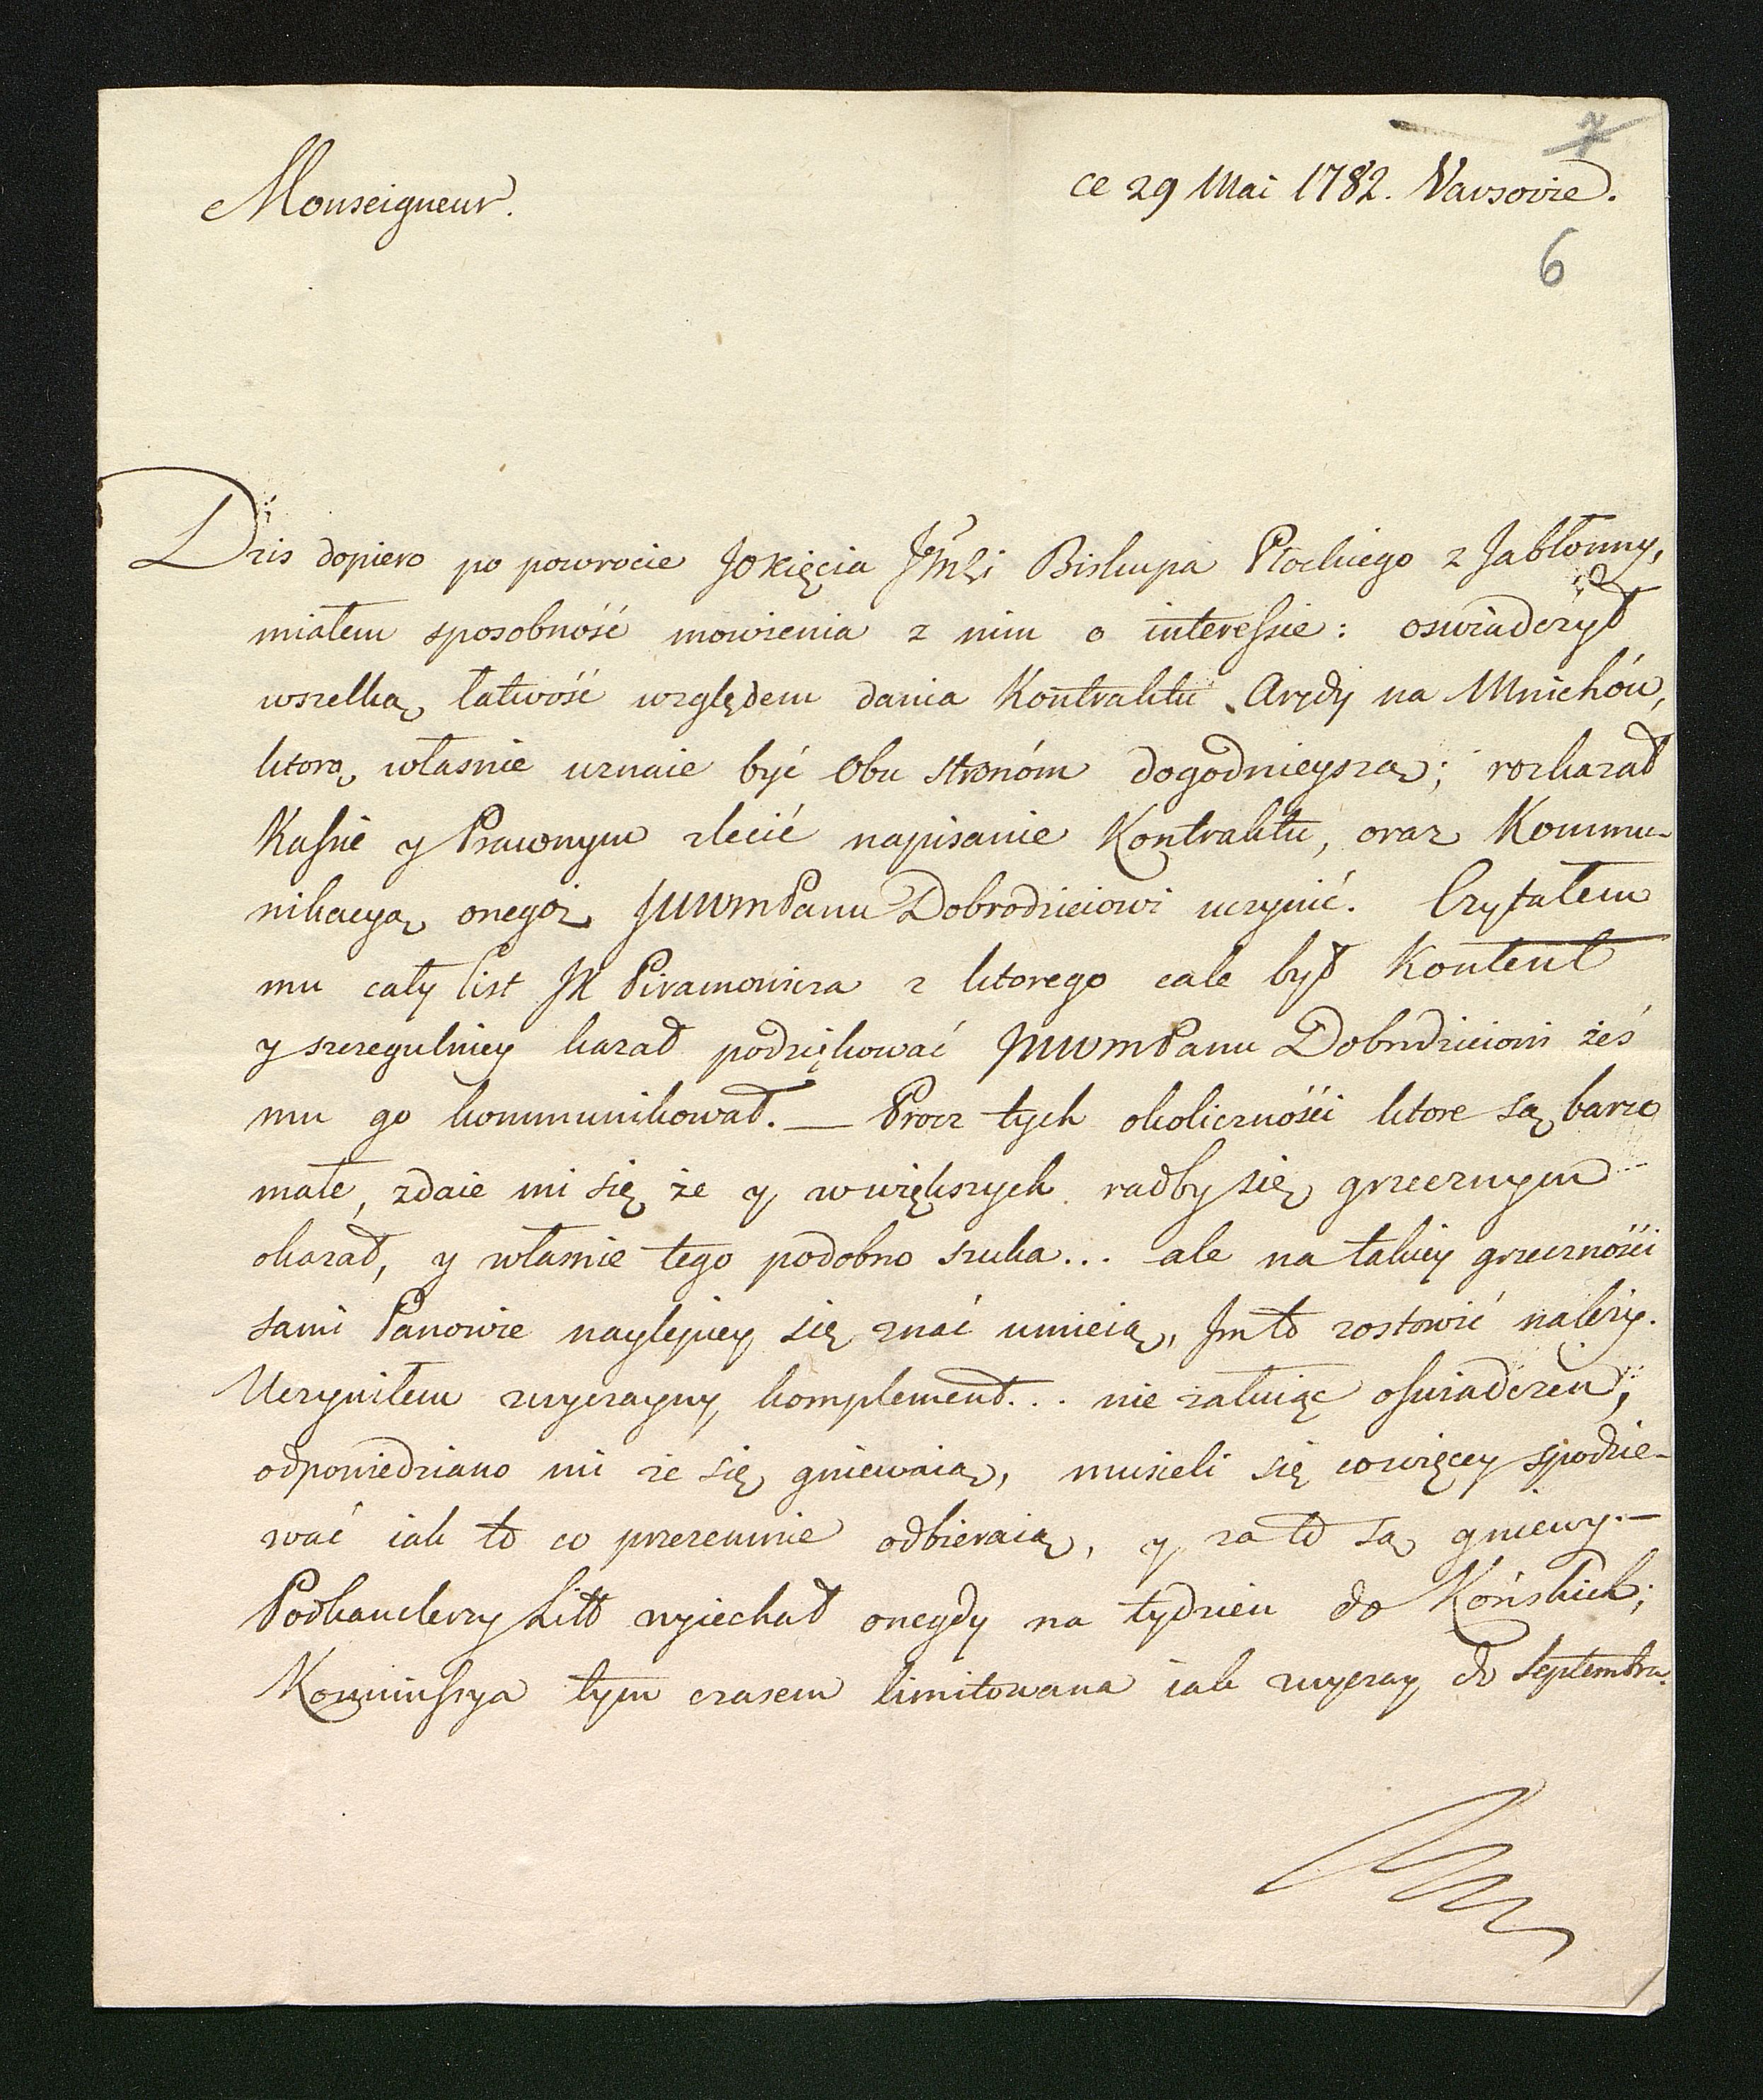 7
Monseigneur.
ce 29 Mai 1782. Varsovie.
6
Dzis dopiero po powrocie JOXięcia Jmći Biskupa Płockiego z Jabłonny,
miałem sposobność mowienia z nim o interessie: oswiadczył
wszelką łatwość względem dania Kontraktu Arędy na Mnichów,
ktorą własnie uznaie być Obu stronóm dogodnieyszą; rozkazał
Kassie y Prawnym zlecić napisanie Kontraktu, oraz Kommu-
nikacyą onegoż JWWmPanu Dobrodzieiowi uczynić. Czytałem
mu cały list JX Piramowicza z ktorego cale był Kontent
y szczegulniey kazał podziękować JWWmPanu Dobrodzieiowi żeś
mu go kommunikował. — Procz tych okolicznośći ktore są barzo
małe, zdaie mi się że y w większych radby się grzecznym
okazał, y własnie tego podobno szuka... ale na takiey grzecznośći
sami Panowie naylepiey się znać umieią, Im to zostawić należy.
Uczyniłem zwyczayny komplement... nie załuiąc oswiadczeń;
odpowiedziano mi że się gniewaią, musieli się cowięcey spodzie-
wać iak to co przezemnie odbieraią, y za to są gniewy. —
Podkanclerzy Litt wyiechał onegdy na tydzień do Końskich;
Kommissya tym czasem limitowana iak zwyczay do Septembra.